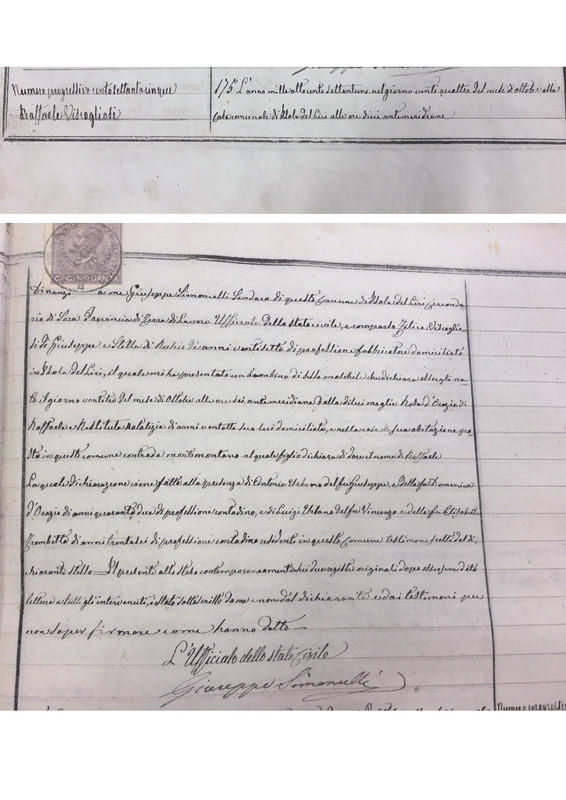 Numero progressivo cento settanta cinque
Raffaele Viscogliosi
175. L'anno mille otto cento settantuno, nel giorno venti quattro del mese di ottobre alla
Casa comunale di Isola del Liri alle ore dieci antimeridiane
CINQUANTA
Dinanzi a me Giuseppe Simoncelli Sindaco di questo Comune di Isola del Liri, Circonda
rio di Sora Provincia di Terra di Lavoro Uffiziale dello stato civile, è comparso Felice Viscoglio
si di Giuseppe e Stella di di anni ventisette di professione domiciliato
in Isola del Liri, il quale mi ha presentato un bambino di sesso maschile che dichiara essergli na
to il giorno ventitrè del mese di ottobre alle ore sei antimeridiane dalla di lui moglie Rosa d'Orazio di
Raffaele e Restituta di anni ventotto seco lui domiciliata, e nella casa di sua abitazione po
sta in questo comune contrada al quale figlio dichiara di dare il nome di Raffaele
La quale dichiarazione viene fatta alla presenza di Antonio Urbano del fu Giuseppe, e della fu Domenica
d'Orazio di anni quaranta due di professione contadino, e di Luigi Urbano del fu Vincenzo e della fu Elisabetta
di anni trenta sei di professione contadino residenti in questo Comune testimoni scelti dal di
chiarante stesso Il presente atto steso contemporaneamente sui due registri originali dopo essersene data
lettura a tutti gli intervenuti, è stato sottoscritto da me e non dal dichiarante e dai testimoni per
non saper firmare come hanno detto
L'Uffiziale dello stato Civile
Giuseppe Simoncelli